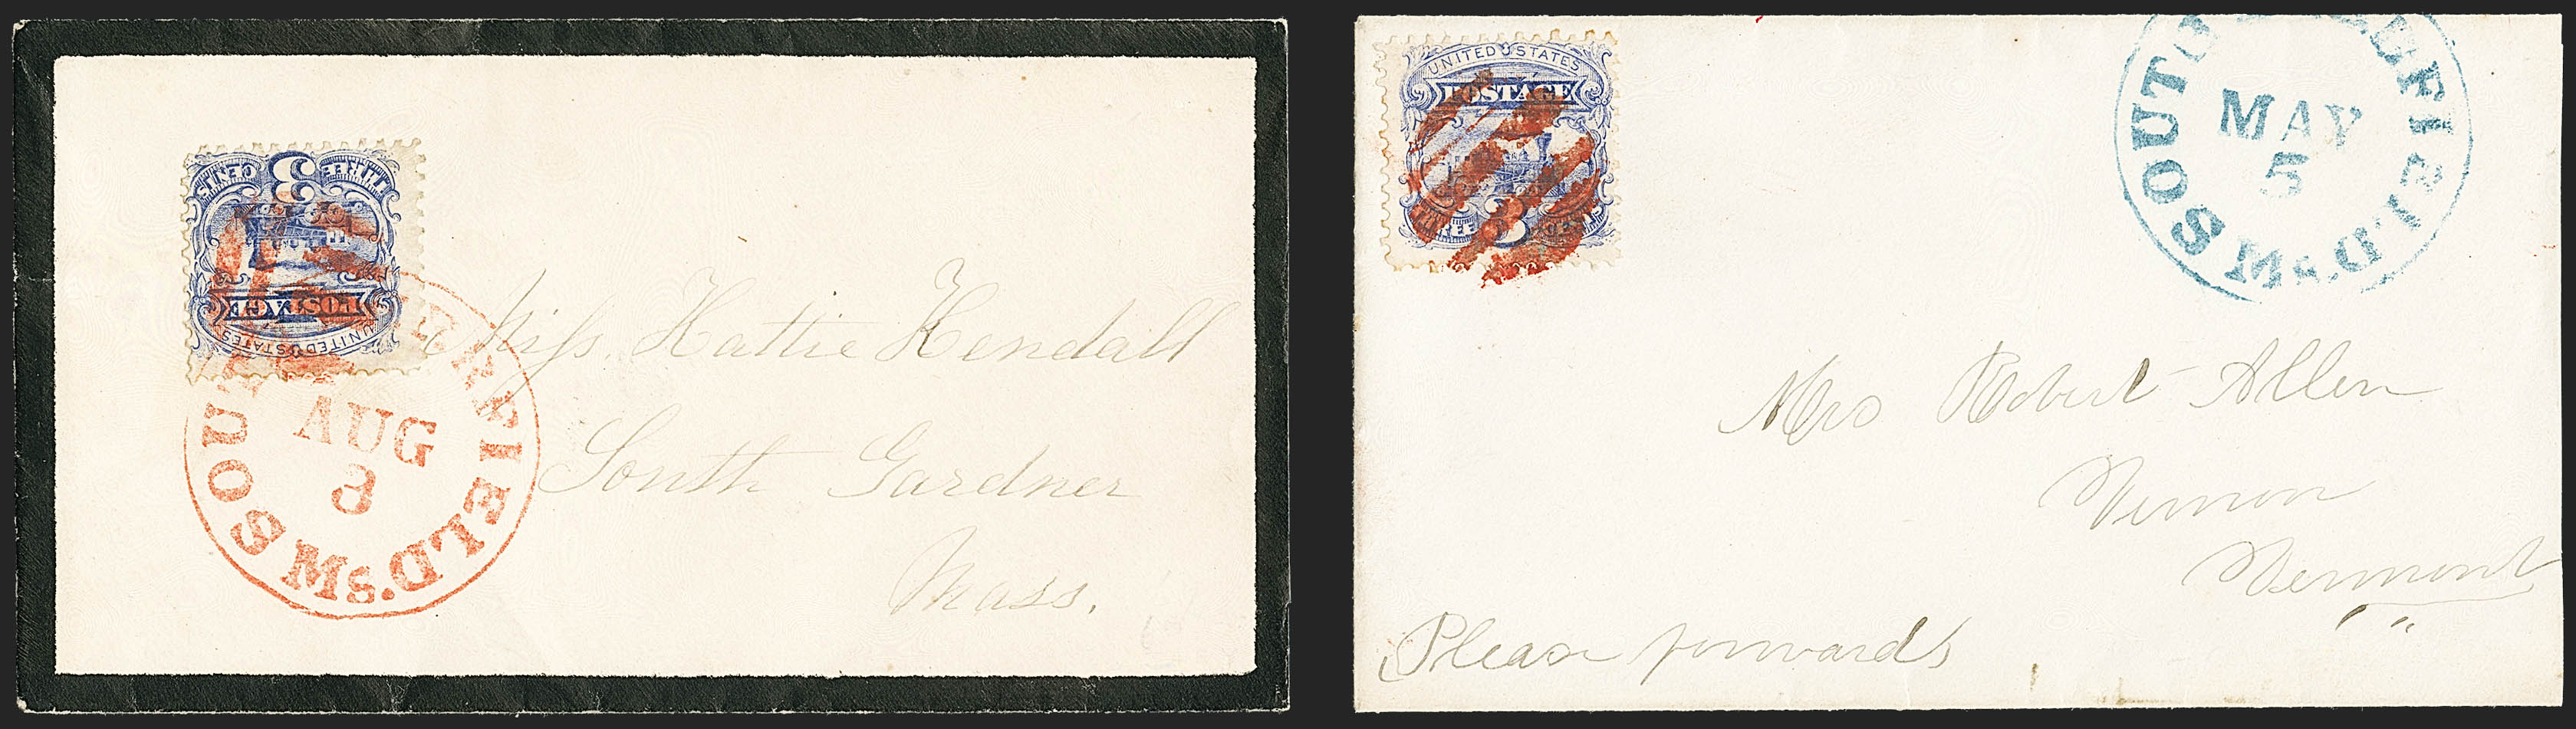 THREE 3 CENTS
POSTAGE
UNITED STATES
SOU ERFIELD. Ms.
AUG
3
Miss. Hattie Kendall
South Gardner
Mass.
UNITED STATES
POSTAGE
3
SOUTH ERFIELD. Ms.
MAY
5
Mrs Robert Allen
Vernon
Vermont
Please forwards